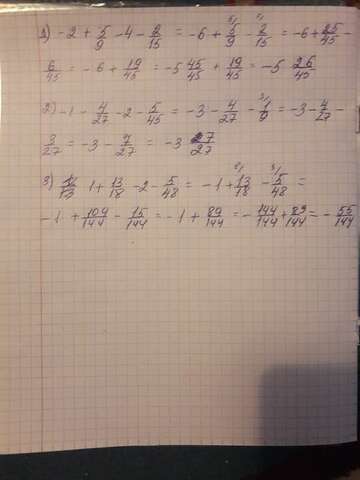 1) -2 + 5/9 -4 - 2/15 = -6 + 5/9 - 2/15 = -6 + 25/45 -
6/45 = -6 + 19/45 = -5 45/45 + 19/45 = -5 26/45
2) -1 - 4/27 -2 - 5/45 = -3 - 4/27 - 1/9 = -3 - 4/27 -
3/27 = -3 - 7/27 = -3 27/27
3) 1 + 13/18 -2 - 5/48 = -1 + 13/18 - 5/48 =
-1 + 104/144 - 15/144 = -1 + 89/144 = - 144/144 + 89/144 = - 55/144